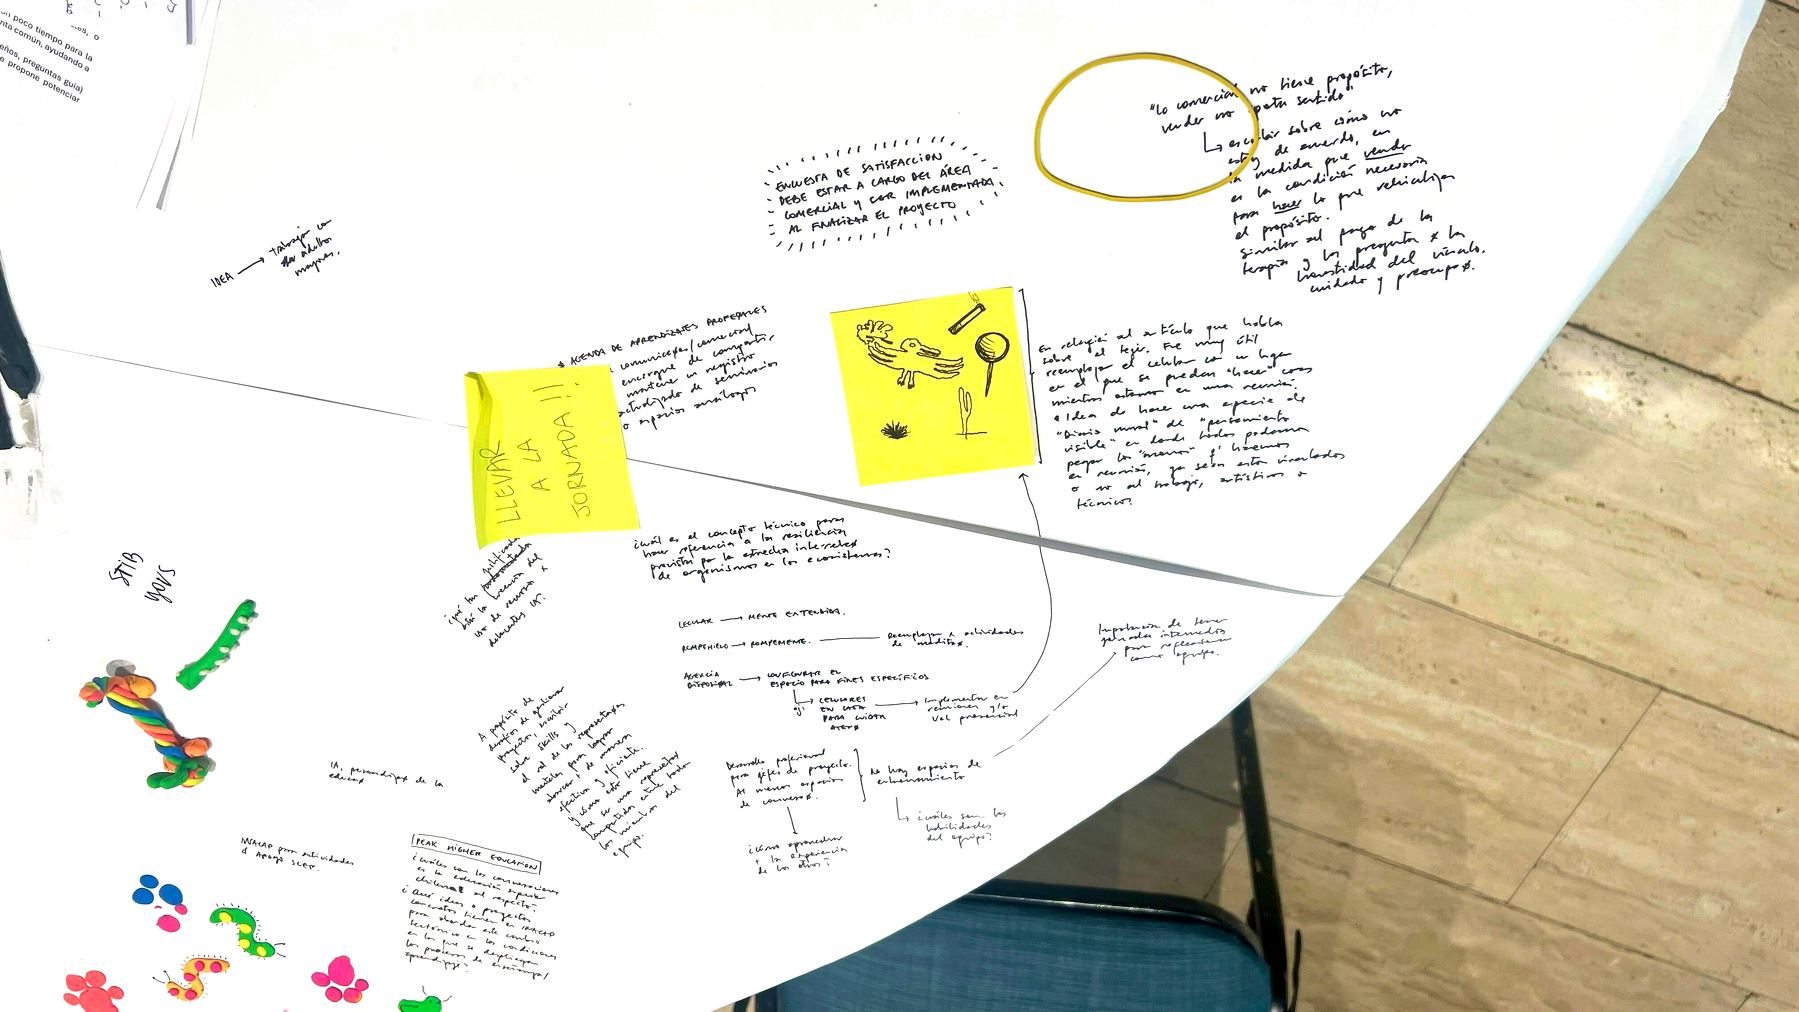 un poco tiempo para la
nta común, ayudando a
eños, preguntas guía)
e propone potenciar
"Lo comercial no tiene propósito,
vender no aporta sentido"
escribir sobre cómo no
estoy de acuerdo, en
la medida que vender
es la condición necesaria
para hacer lo que vehiculiza
el propósito.
similar al pago de la
terapia y la pregunta x la
honestidad del vínculo,
cuidado y preocupax.
ENCUESTA DE SATISFACCION
DEBE ESTAR A CARGO DEL ÁREA
COMERCIAL Y SER IMPLEMENTADA
AL FINALIZAR EL PROYECTO
IDEA → trabajar con
adultos
mayores.
* AGENDA DE APRENDIZAJES
comunicax/comercial
encargue de compartir,
mantener un registro
actualizado de seminarios
o espacios análogos
LLEVAR
A LA
JORNADA!!
En relación al artículo que habla
sobre el tejer. Fue muy útil
reemplazar el celular con un lugar
en el que se puedan "hacer" cosas
mientras estamos en una reunión.
* Idea de hacer una especie de
"Diario mural" de "pensamiento
visible" en donde todos podamos
pegar los "monos" q' hacemos
en reunión, ya sean estos vinculados
o no al trabajo, artísticos o
técnicos.
¿cuál es el concepto técnico para
hacer referencia a la resiliencia
provista por la estrecha inter-relax
de organismos en los ecosistemas?
justificada
la creación del
uso de recursos x
IA.
STIB
YOVS
CELULAR → MENTE EXTENDIDA.
ROMPEHIELO → ROMPEMENTE. — Reemplazar x actividades
de
AGENCIA → CONFIGURAR EL
ESPACIO PARA FINES ESPECÍFICOS
ej: CELULARES
EN CAJA
PARA CUIDAR
ATENX
→ Implementar en
reuniones y/o
presencial
Importancia de tener
jornadas intermedias
para reflexionar
como equipo.
A propósito de
desafíos de gestionar
proyectos, escribir
sobre skills y
el rol de las representax
mentales para lograr
abarcar de manera
efectiva y eficiente.
y cómo esto tiene
que ser una representax
compartida entre todos
los miembros del
equipo.
Desarrollo profesional
para jefes de proyecto.
Al menos espacios
de conversax.
No hay espacios de
entrenamiento
¿cuáles son las
habilidades
del equipo?
¿Cómo aprovechar
+ la experiencia
de los otros?
IA, personalizax de la
educax
INACAP para actividades
d' APOYO SLEP.
PEAK HIGHER EDUCATION
¿cuáles son las conversaciones
en la educación superior
chilena al respecto?
¿Qué ideas o proyectos
concretos tienen en INACAP
para abordar este cambio
tectónico en las condiciones
en las que se despliegan
los procesos de enseñanza/
aprendizaje?